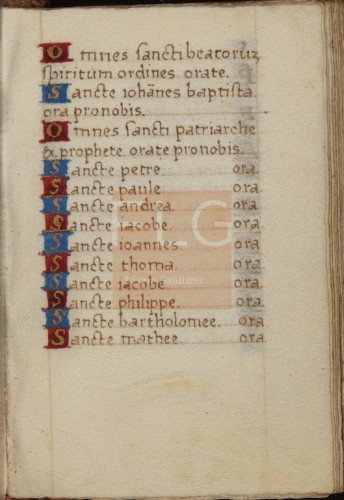 Omnes sancti beatoruz
spiritum ordines orate.
Sancte iohānes baptista
ora pronobis.
Omnes sancti patriarche
& prophete orate pronobis.
Sancte petre ora.
Sancte paule ora.
Sancte andrea. ora.
Sancte iacobe. ora.
Sancte ioannes. ora.
Sancte thoma. ora.
Sancte iacobe ora.
Sancte philippe. ora.
Sancte bartholomee. ora.
Sancte mathee. ora.